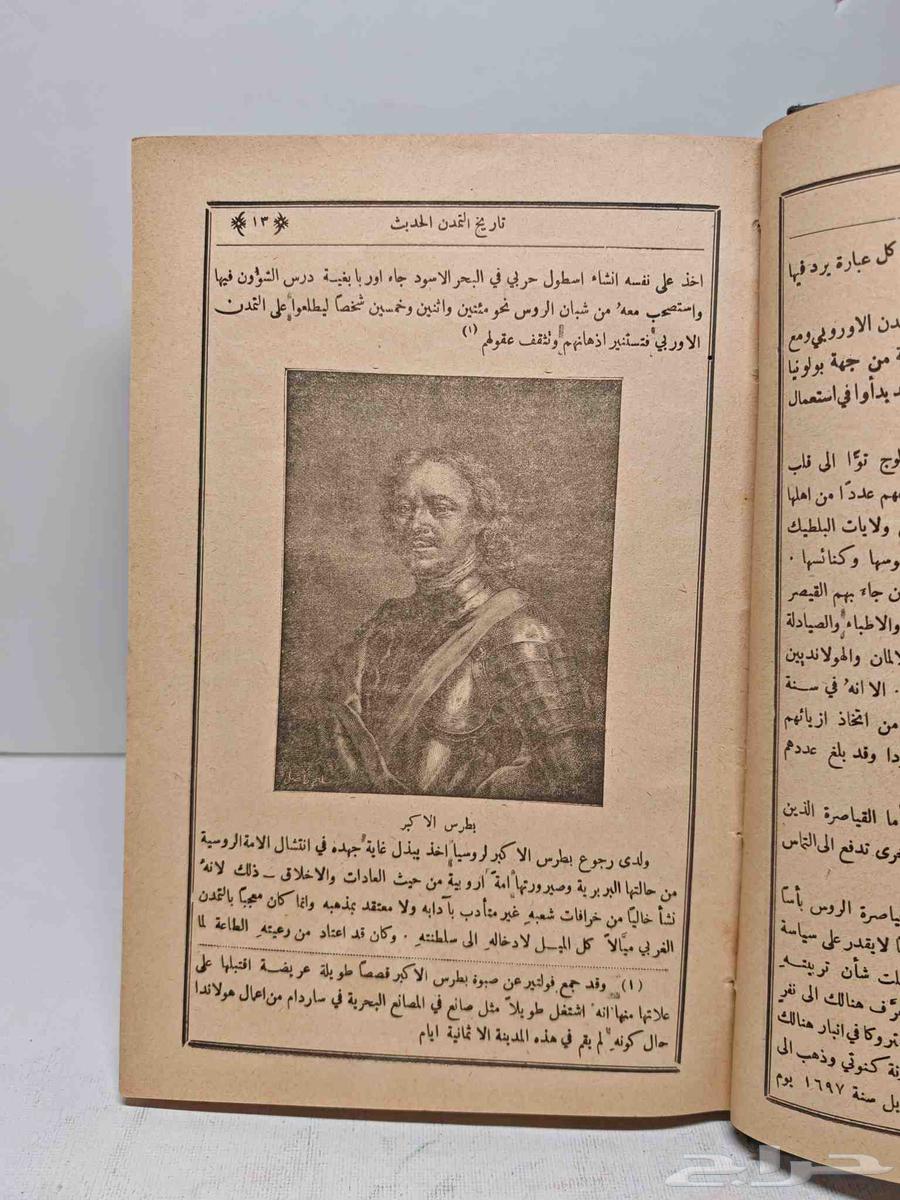 تاريخ التمدن الحديث
١٣
اخذ على نفسه انشاء اسطول حربي في البحر الاسود جاء اوربا بغيـة درس الشؤون فيها
واستصحب معهُ من شبان الروس نحو مئتين واثنين وخمسين شخصاً ليطلعوا على التمدن
الاوربي فتستنير اذهانهم وتثقف عقولهم (١)
بطرس الاكبر
ولدى رجوع بطرس الاكبر لروسيا اخذ يبذل غاية جهده في انتشال الامة الروسية
من حالتها البربرية وصيرورتها امة اروبية من حيث العادات والاخلاق – ذلك لانهُ
نشأ خالياً من خرافات شعبهِ غير متأدب بآدابه ولا معتقد بمذهبه وانما كان معجباً بالتمدن
الغربي ميَّالاً كل الميـل لادخاله الى سلطنتهِ . وكان قد اعتاد من رعيتهِ الطاعة لما
(١) وقد جمع فولتير عن صبوة بطرس الاكبر قصصاً طويلة عريضـة اقتبلها على
علاتها منها انه اشتغل طويلاً مثل صانع في المصانع البحرية في ساردام من اعمال هولاندا
حال كونهِ لم يقم في هذه المدينة الا ثمانية ايام
كل عبارة يرد فيها
دن الاوروبي ومع
ة من جهة بولونيا
د بدأوا في استعمال
لوج توًّا الى قلب
هم عددًا من اهلها
ولايات البلطيك
وسها وكنائسها .
ن جاء بهم القيصر
والاطباء والصيادلة
لالمان والهولانديين
. الا انهُ في سـنة
من اتخاذ ازيائهم
ودا وقد بلغ عددهم
أما القياصرة الذين
خرى تدفع الى التماس
قياصرة الروس بأسًا
ا لا يقدر على سياسة
لت شأن تربيتـهِ
رَّف هنالك الى نفر
تروكا في انبار هنالك
نة كنوتي وذهب الى
يل سنة ١٦٩٧ يوم
حراج